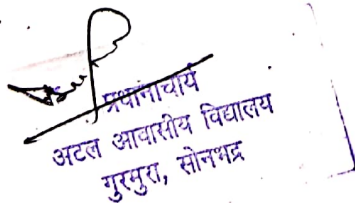 प्रधानाचार्य
अटल आवासीय विद्यालय
गुरमुरा, सोनभद्र